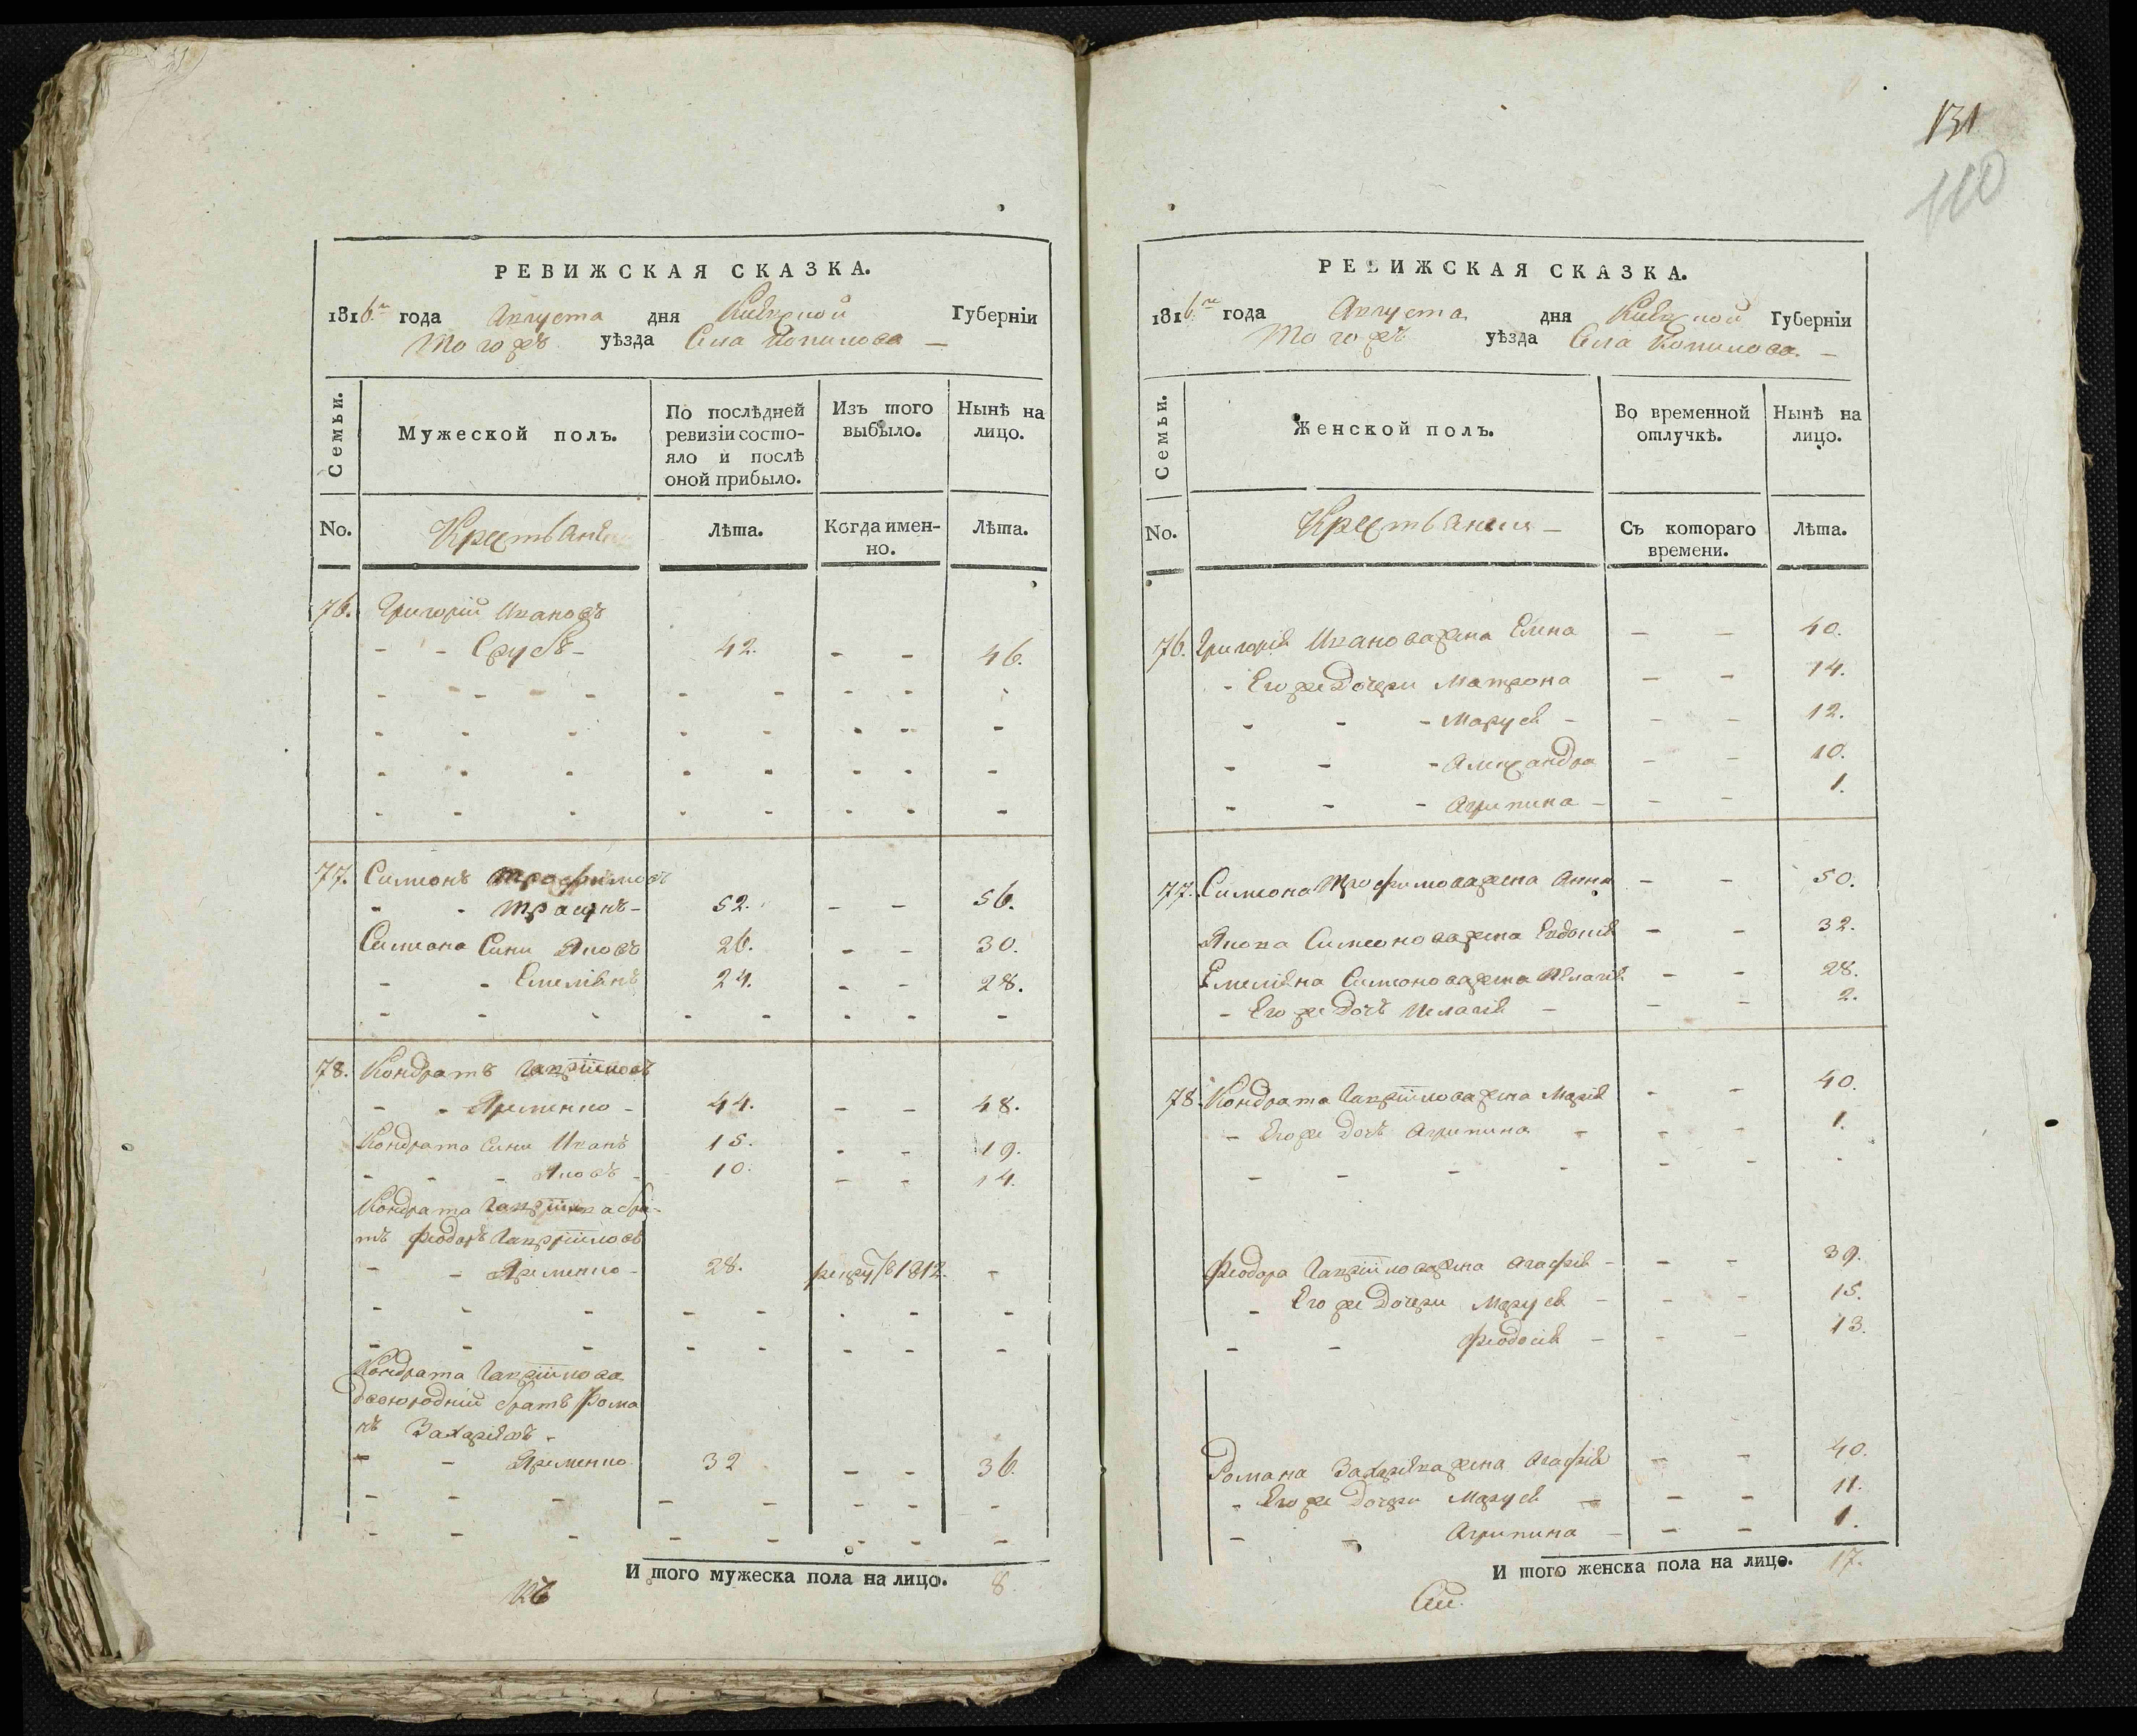 РЕВИЖСКАЯ СКАЗКА.
1816го года Августа дня Кіевской Губерніи
тогожъ уѣзда Села Копилова
Семьи.
Мужеской полъ.
По послѣдней ревизіи состо-
яло и послѣ
оной прибыло.
Изъ того
выбыло.
Нынѣ на
лицо.
No.
Крестьяне
Лѣта.
Когда имен-
но.
Лѣта.
76. Григорій Ивановъ
42. 46.
77. Симеонъ Трофимовъ
52. 56.
Симеона Сини Яковъ 26. 30.
Емеліянъ 24. 28.
78. Кондратъ Гавріиловъ
Яременко 44. 48.
Кондрата Сини Иванъ 15. 19.
Яковъ 10. 14.
Кондрата Гавріилова бра-
тъ Феодоръ Гавріиловъ
Яременко 28. 1812.
Кондрата Гавріилова
двоюродній братъ Рома
нъ Захаріевъ
Яременко 32 36.
И того мужеска пола на лицо. 8.
131
110
РЕВИЖСКАЯ СКАЗКА.
1816го года Августа дня Кіевской Губерніи
тогожъ уѣзда Села Копилова
Семьи.
Женской полъ.
Во временной
отлучкѣ.
Нынѣ на
лицо.
No.
Крестьяне
Съ котораго
времени.
Лѣта.
76. Григорія Иванова жена Елена 40.
Его же Дочери Матрона 14.
Маруся 12.
Александра 10.
Агрипина 1.
77. Симеона Трофимова жена Анна 50.
Якова Симеонова жена Евдокія 32.
Емеліяна Симеонова жена Пелагія 28.
Его же Дочь Пелагія 2.
78. Кондрата Гавріилова жена Марія 40.
Его же Дочь Агрипина 1.
Феодора Гавріилова жена Агафія 39.
Его же Дочери Маруся 15.
Феодосія 13.
Романа Захаріева жена Агафія 40.
Его же Дочери Маруся 11.
Агрипина 1.
И того женска пола на лицо. 17.